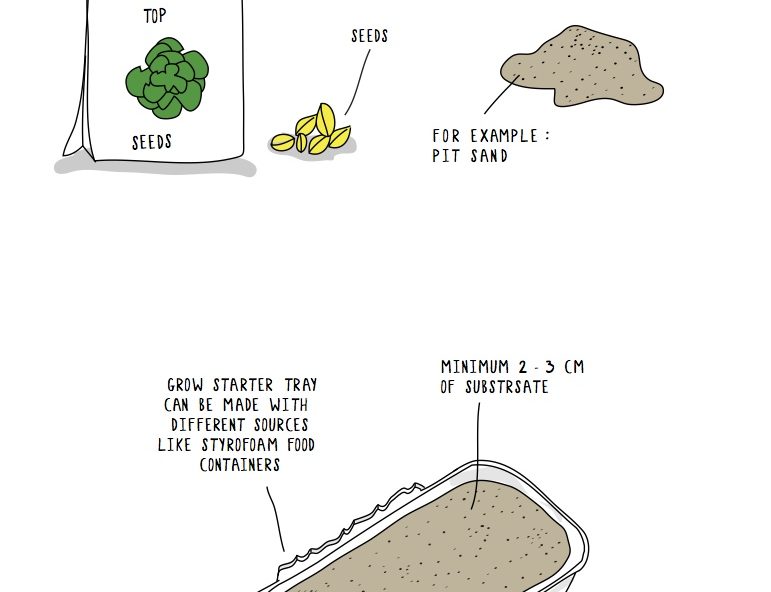 TOP
SEEDS
SEEDS
FOR EXAMPLE :
PIT SAND
GROW STARTER TRAY
CAN BE MADE WITH
DIFFERENT SOURCES
LIKE STYROFOAM FOOD
CONTAINERS
MINIMUM 2 - 3 CM
OF SUBSTRSATE